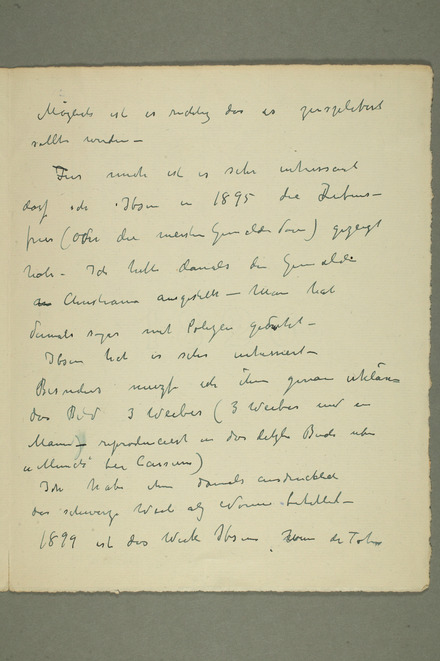 Möglich ist es richtig das es
sollte werden –
Für mich ist es sehr interessant
das ich Ibsen in 1895 die Lebens-
fries (oder die meisten Gemälde davon) gezeigt
habe – Ich hatte damals die Gemälde
in Christiania ausgestellt – Man hat
damals sogar mit Polizei gedroht –
Ibsen hat es sehr interessiert –
Besonders musste ich ihm genau erklären
das Bild 3 Weiber (3 Weiber und ein
Mann) – reproduciert in das letzte Buch über
Munch bei Cassirer)
Ich habe ihm damals ausdrücklich
das schwarze Weib als Nonne betitelt –
1899 ist das Werk Ibsens de Tot